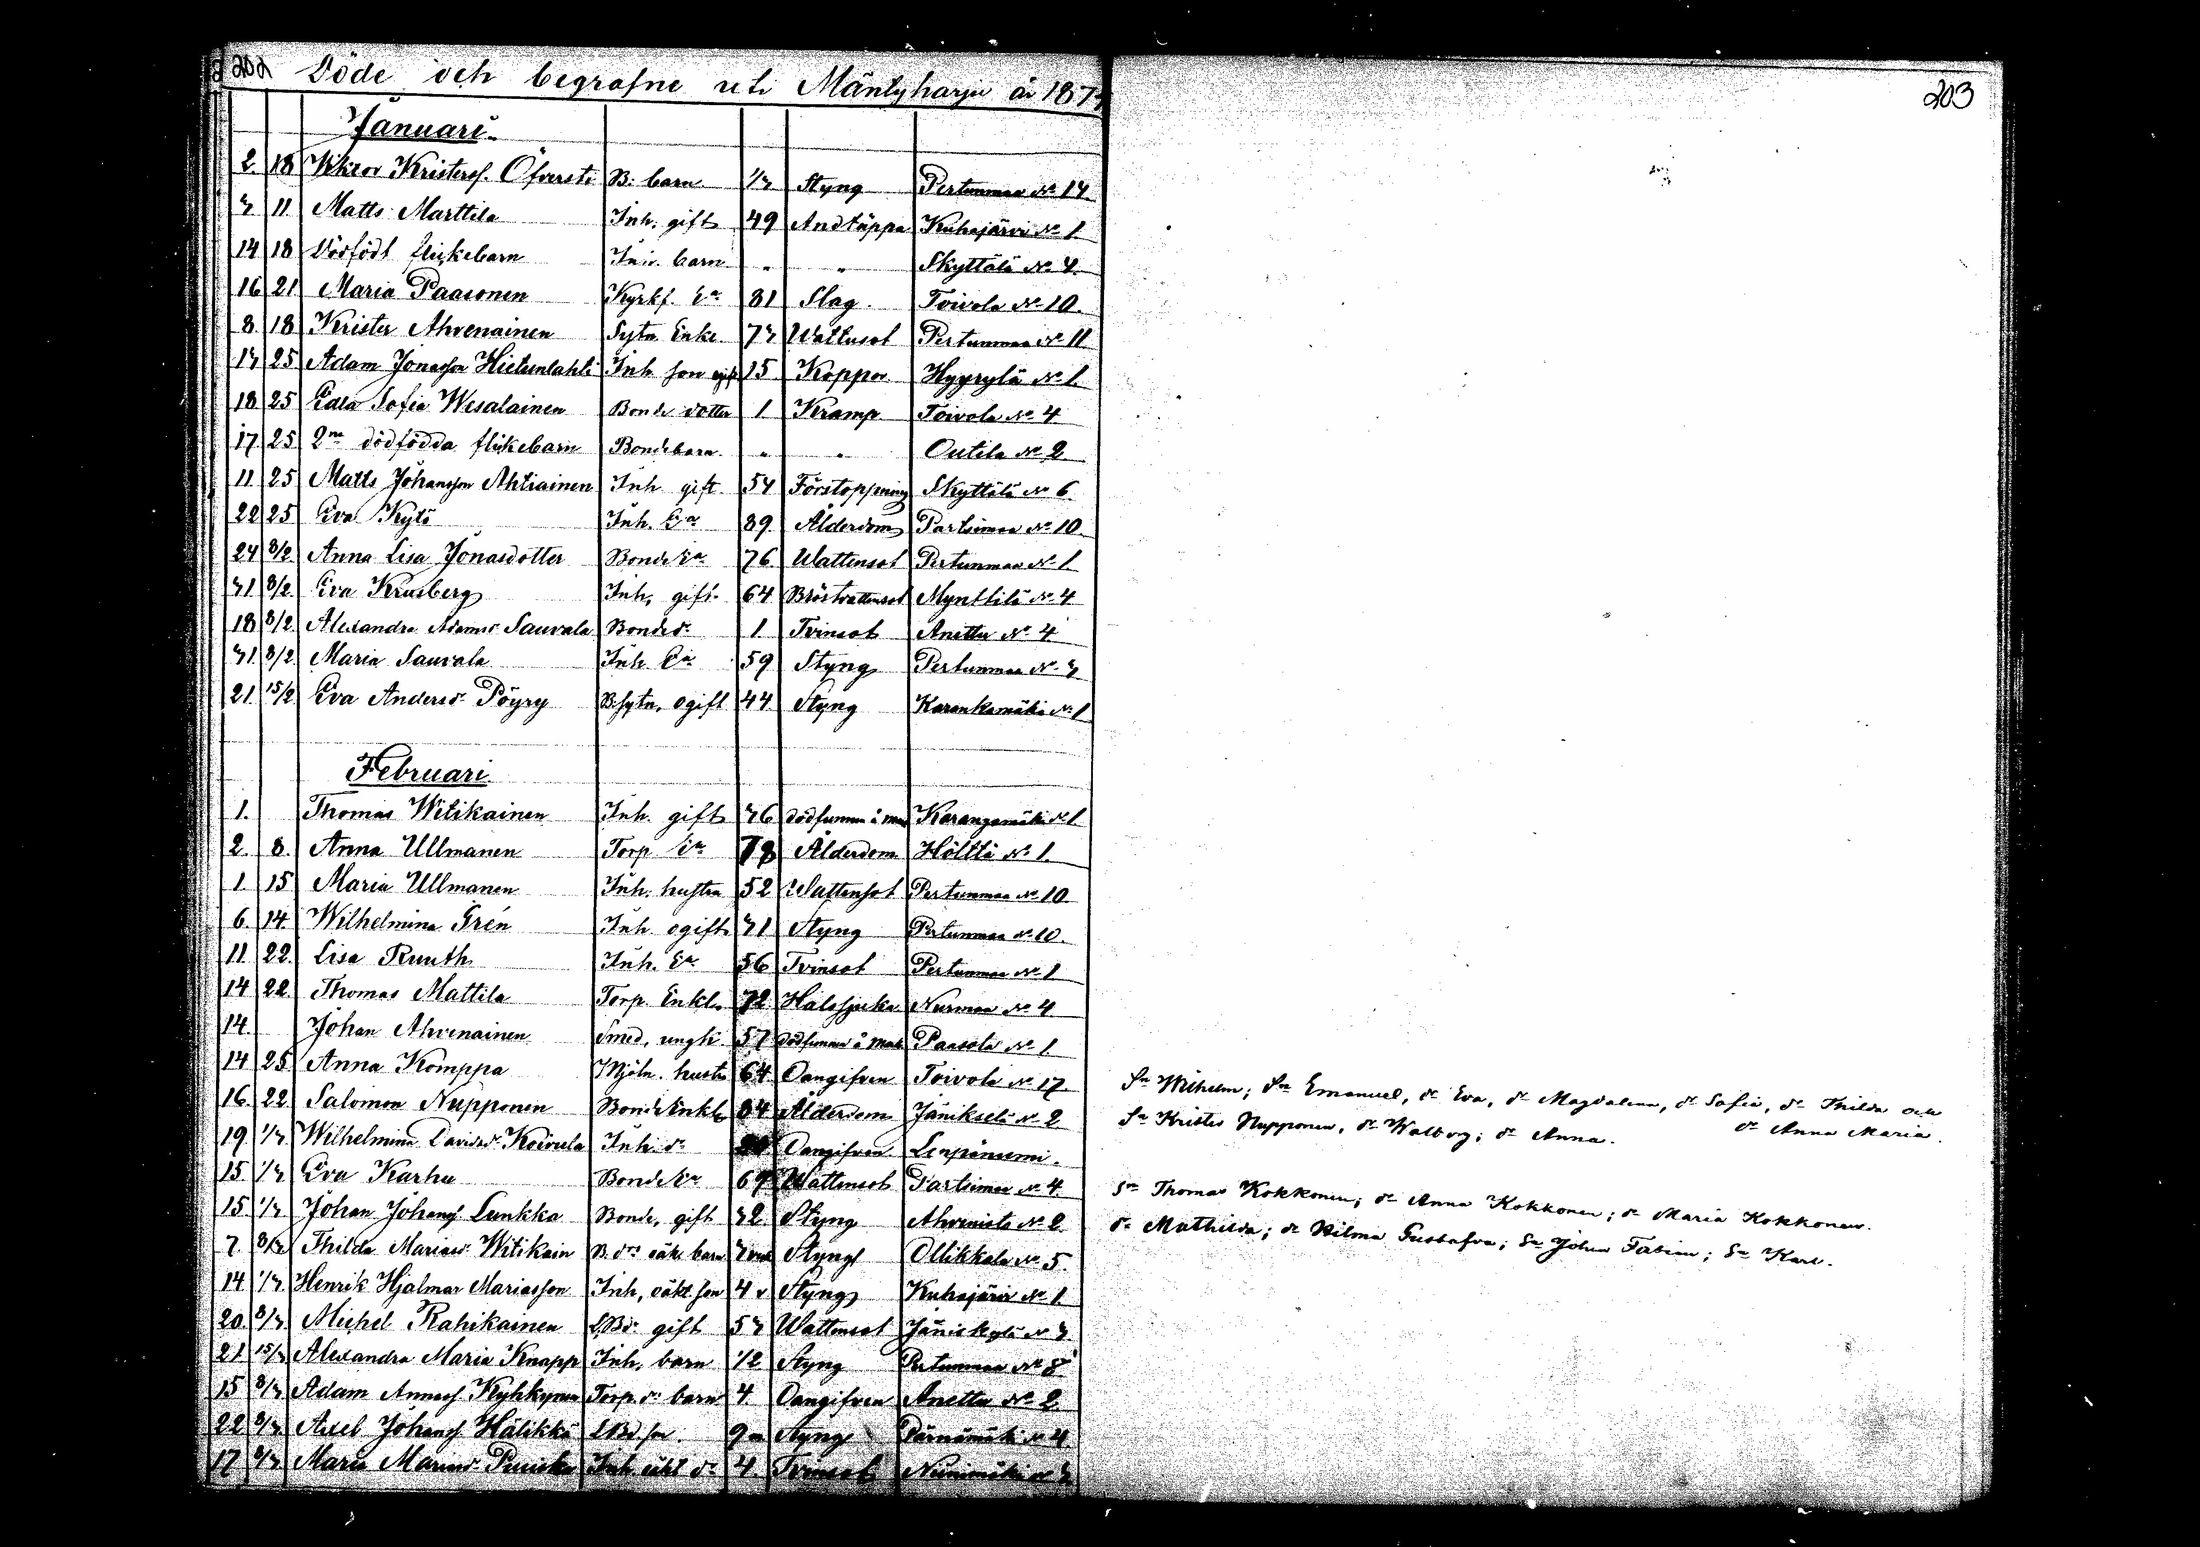 202 Döde och begrafne uti Mäntyharju år 187
203
Januari.
2. 18 Viktor Kristersf. Öfversti B. barn Styng Pertunmaa No 14.
3 11 Matts Marttila Inh. gift 49 Andtäppa Kuhajärvi No 1
14 18 Dödfödt flickebarn Inh. barn " " Skyttälä No 4.
16 21 Maria Paasonen Kyrkf. Ea 81 Slag. Toivola No 10.
8. 18 Krister Ahvenainen Sytn. Enkl. 73 Wattusot Pertunmaa No 11
13 25 Adam Jonasson Hietanlahti Inh. son 15. Koppor Hyyrylä No 1.
18. 25 Sofia Wesalainen Bonde dotter 1 Kramp Toivola No 4
17. 25 2ne dödfödda flickebarn Bondebarn. " " Outila No 2
11 25 Matts Johansson Ahtiainen Inh. gift. 54 Förstoppning Skyttälä No 6.
22 25 Eva Kytö Inh. Ea 89. Ålderdom Partsimaa No 10.
24 8/2 Anna Lisa Jonasdotter Bonde Ea 76. Wattensot Pertunmaa No 1
31 8/2 Eva Krusberg Inh. gift. 64 Bröstvattensot Mynttilä No 4
18 8/2 Alexandra Adamsd. Sauvala Bonded. 1. Tvinsot Anettu No 4
31. 8/2. Maria Sauvala Inh. Ea 59 Styng Pertunmaa No 3
21. 15/2 Eva Andersd. Pöyry B. sytn. ogift 44 Styng Karankamäki No 1
Februari
1. Thomas Witikainen Inh. gift 36 dödfunnen å Karangamäki No 1
2. 8. Anna Ullmanen Torp. Ea 78 Ålderdom Hölttä No 1.
1. 15 Maria Ullmanen Inh. hustru 52 Wattensot Pertunmaa No 10
6. 14. Wilhelmina Grén Inh. ogift 31 Styng Pertunmaa No 10.
11 22. Lisa Ruuth Inh. Ea 56 Tvinsot Pertunmaa No 1
14 22 Thomas Mattila Torp. Enkl. 72 Halssjuka Nurmaa No 4
14. Johan Ahvenainen Smed, ungk. 57 dödfunnen å Paasola No 1
14 25 Anna Komppa Mjöln. hustr. 64 Oangifven Toivola No 17.
16. 22. Salomon Nupponen Bonde Enkl. 84 Ålderdom Jänikselä No 2
19. 1/3 Wilhelmina Davidsd. Koivula Inh. d. Oangifven Lenpäniemi.
15. 1/3 Eva Karhu Bonde Ea 69 Wattensot Partsimaa No 4
15. 1/3 Johan Johansf. Lunkka Bonde, gift 32 Styng Ahvenisto No 2
7. 8/3 Thilda Mariasd. Witikain B. ds. oäkt. barn Styng Ollikkala No 5.
14 1/3 Henrik Hjalmar Mariasson Inh. oäkt. son 4 v Styng Kuhajärvi No 1
20. 8/3 Michel Rahikainen L.Bd. gift 53 Wattensot Jäniskylä No 3
21 15/3 Alexandra Maria Knapp Inh. barn 1/2 Styng Pertunmaa No 8
15 8/3 Adam Annasf. Kyhkynen Torp. d. barn 4. Oangifven Anettu No 2
22 8/3 Axel Johansf. Hälikkä LBd son. 9 m Styng Pärnämäki No 4
17 8/3 Maria Mariasd. Inh. oäkt d. 4. Tvinsot Niinimäki No 3
Sn Wilhelm; Sn Emanuel, dr Eva, dr Magdalena, dr Sofia, dr Thilda och
dr Anna Maria.
Sn Krister Nupponen, dr Walborg; dr Anna.
Sn Thomas Kokkonen; dr Anna Kokkonen; dr Maria Kokkonen.
dr Mathilda; dr Hilma Gustafva; Sn Johan Fabian; Sn Karl.